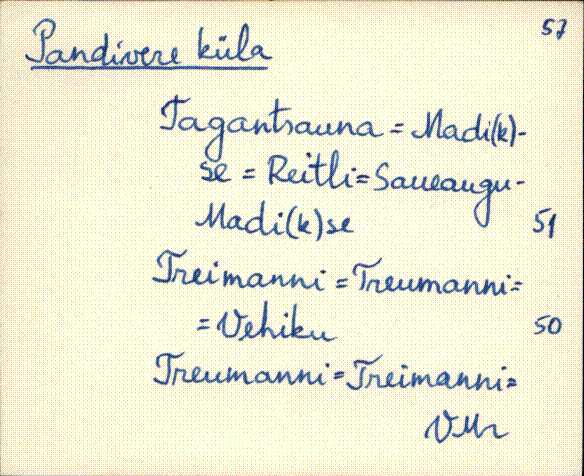 57
Pandivere küla
Tagantsauna = Madi(k)-
se = Reitli = Saueaugu-
Madi(k)se 51
Treimanni = Treumanni =
= Vehiku 50
Treumanni = Treimanni =
VMr